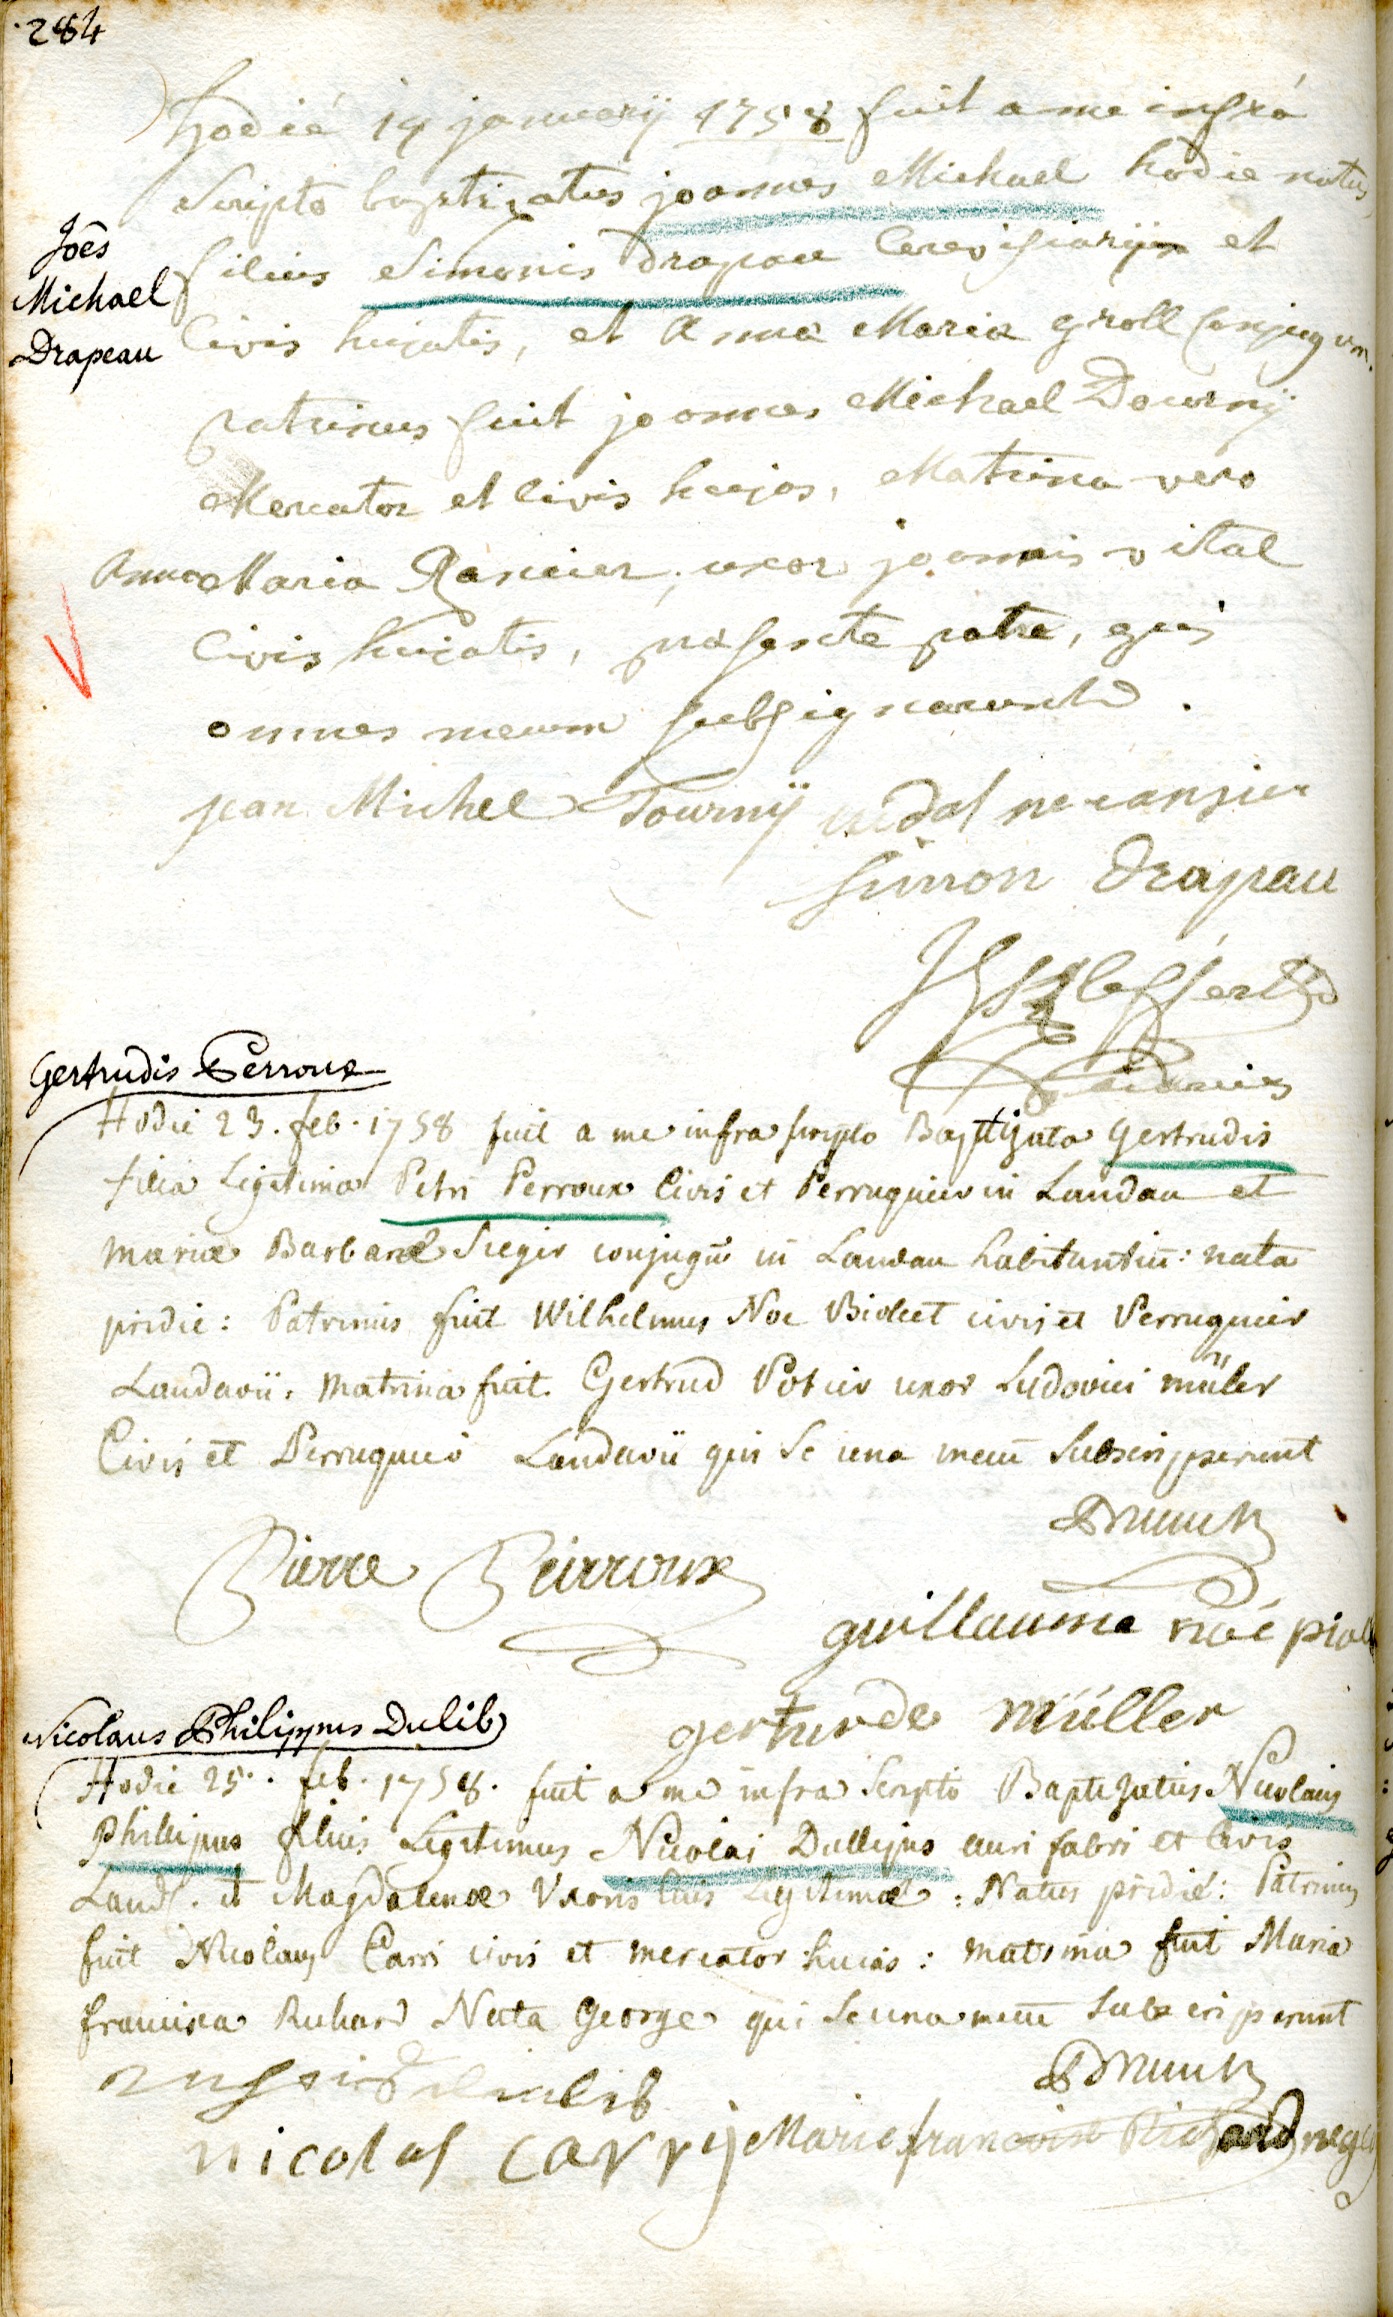 284
Hodié 19 januarij 1758 fuit a me infrá
Scripto baptizatus joannes Michael hodie natus
Joês
Michael
Drapeau
filius Simonis drapau Cerevisiarij et
Civis hujatis, et Anna Maria groll Conjugum.
patrinus fuit joannes Michael Dournij
Mercator et Civis hujas, Matrina vero
Anna Maria Rancier, uxor joannis vital
Civis hujatis, præsente patre, qui
omnes mecum subsignarunt.
jean Michel Tournij vidal ne ransier
Simon drapau
Gertrudis Perroux
Hodie 23. feb. 1758 fuit a me infra scripto Baptizata Gertrudis
filia Legitima Petri Perroux Civis et Perruquier in Landau et
mariæ Barbaræ Sieger conjugū in Landau habitantiū: nata
pridie: Patrinus fuit Wilhelmus Noe Violet civis et Perruquier
Landavii: Matrina fuit Gertrud Potier uxor Ludovici müler
Civis et Perruquier Landavii qui se una mecū Subscripserunt
Pierre Peirroux
guillaume noé
gerturde müller
Nicolaus Philippus Dulib
Hodie 25. feb. 1758. fuit a me infra Scripto Baptizatus Nicolaus
Philippus filius Legitimus Nicolai Dullijus auri fabri et Civis
Land. et Magdalenæ Uxoris Suis Legitimæ: Natus pridié: Patrinus
fuit Nicolaus Carri civis et mercator hujas: matrina fuit Maria
francisca Richard Nata George qui Se una mecū Subscripserunt
nicolas carrij Marie francoise Richard